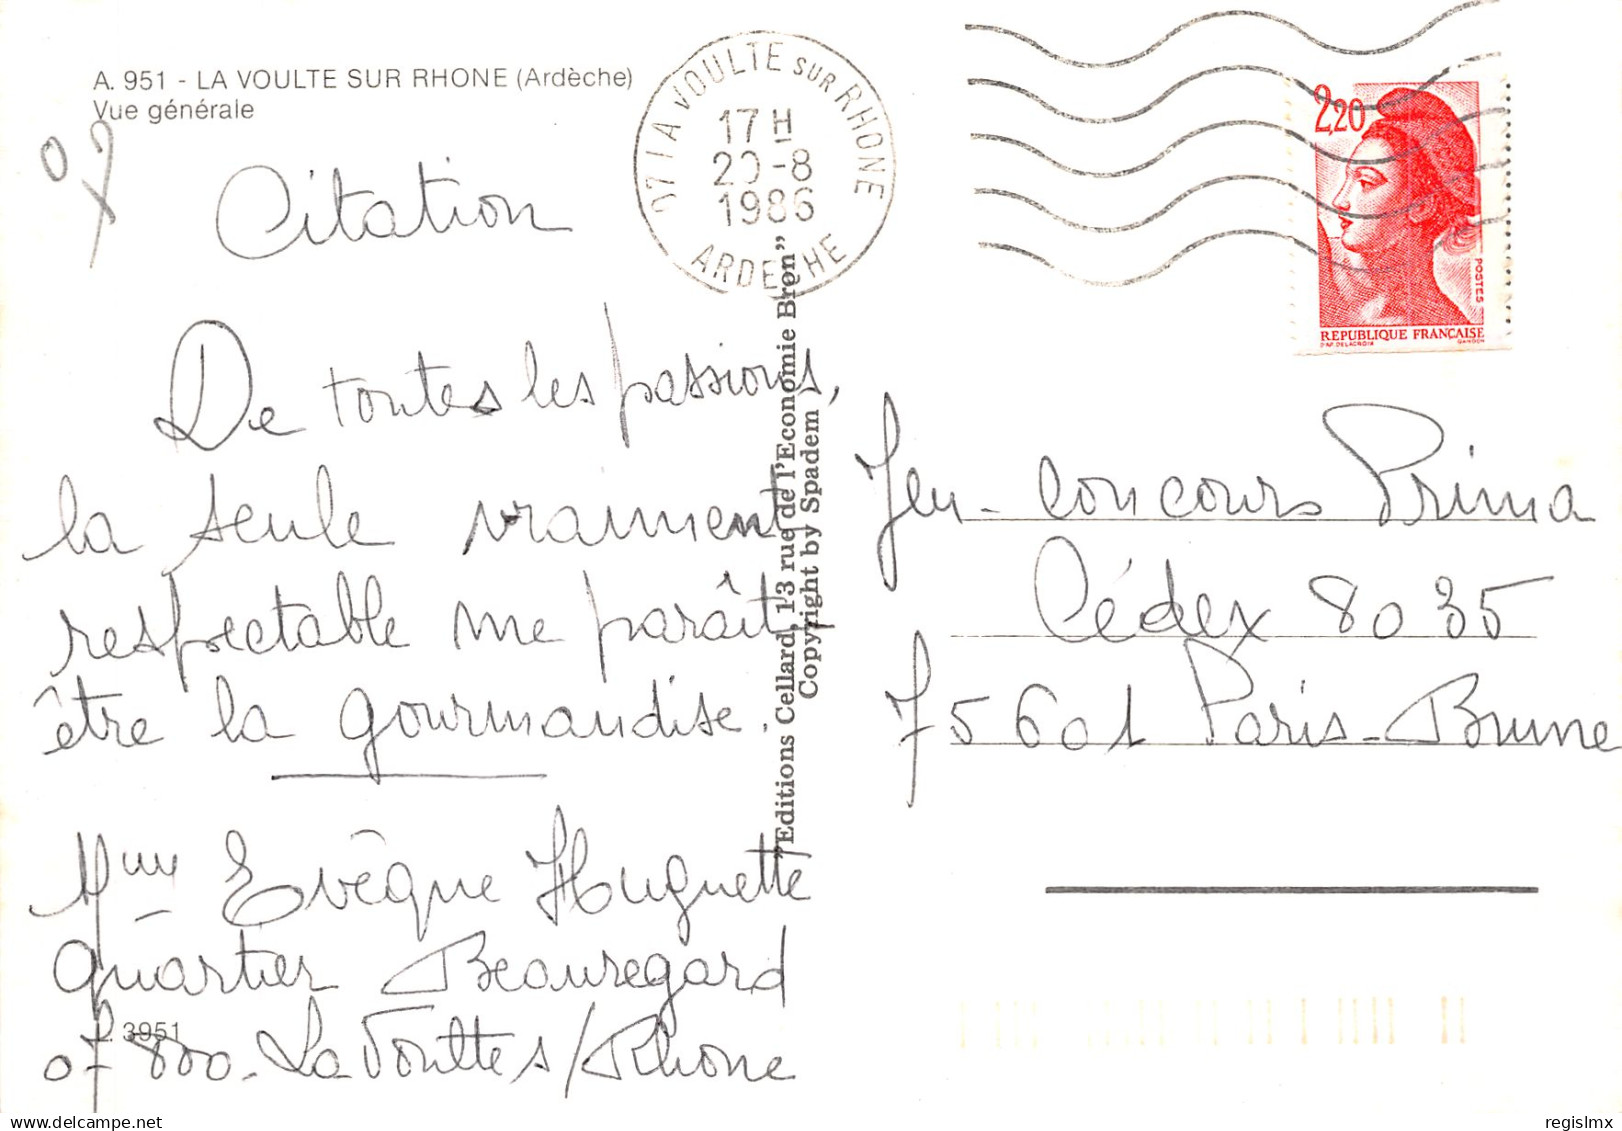 A. 951 - LA VOULTE SUR RHONE (Ardèche)
Vue générale
07
Citation
De toutes les passions,
la seule vraiment
respectable me paraît
être la gourmandise.
Mme Evêque Huguette
Quartier Beauregard
L 3951
07 800. La Voultes/Rhone
07 LA VOULTE SUR RHONE
17H
20-8
1986
ARDECHE
"Editions Cellard, 13 rue de l'Economie Bron"
Copyright by Spadem
2,20
POSTES
REPUBLIQUE FRANÇAISE
D'AP. DELACROIX
GANDON
Jeu-concours Prima
Cédex 8035
75601 Paris-Brune
delcampe.net
regislmx